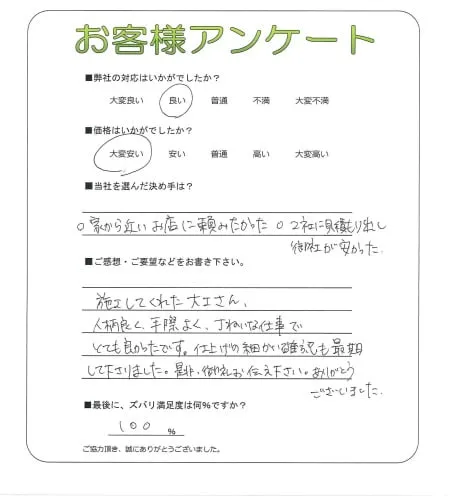 お客様アンケート
■弊社の対応はいかがでしたか？
大変良い 良い 普通 不満 大変不満
■価格はいかがでしたか？
大変安い 安い 普通 高い 大変高い
■当社を選んだ決め手は？
○家から近いお店に頼みたかった ○2社に見積もり出し
御社が安かった.
■ご感想・ご要望などをお書き下さい。
施工してくれた大工さん、
人柄良く、手際よく、丁ねいな仕事で
とても良かったです。仕上げの細かい
して下さりました。是非、御礼お伝え下さい。ありがとう
ございました.
■最後に、ズバリ満足度は何％ですか？
100 ％
ご協力頂き、誠にありがとうございました。